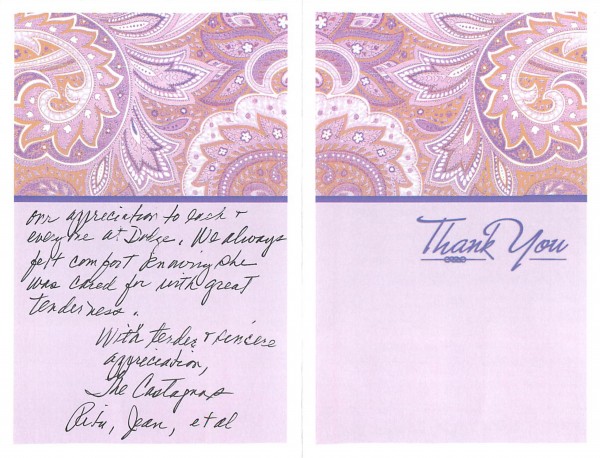 our appreciation to each &
everyone at Dodge. We always
felt comfort knowing she
was cared for with great
tenderness.
With tender & sincere
appreciation,
The Castagnas
Rita, Jean, et al
Thank You